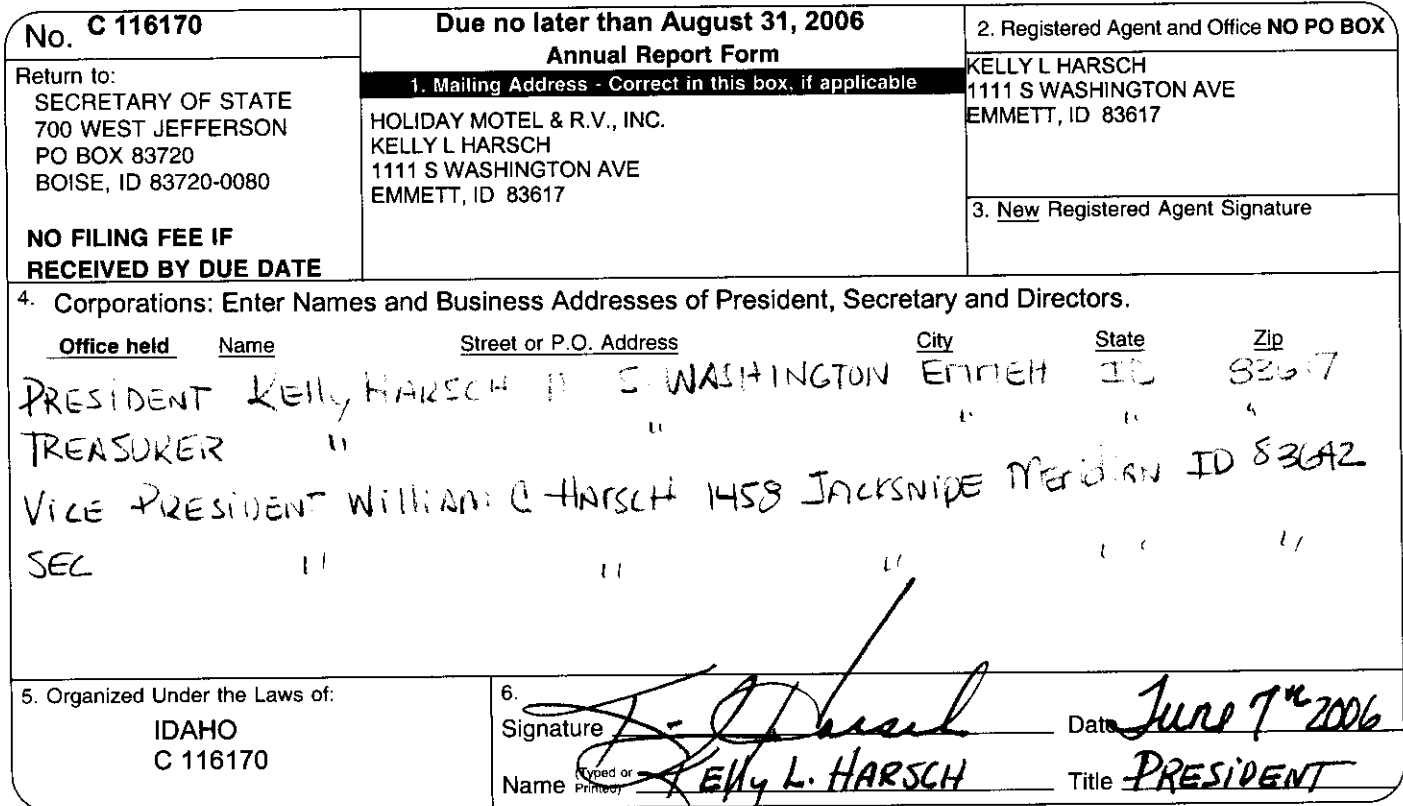 No. C 116170
Return to:
SECRETARY OF STATE
700 WEST JEFFERSON
PO BOX 83720
BOISE, ID 83720-0080
NO FILING FEE IF
RECEIVED BY DUE DATE
Due no later than August 31, 2006
Annual Report Form
1. Mailing Address - Correct in this box, if applicable
HOLIDAY MOTEL & R.V., INC.
KELLY L HARSCH
1111 S WASHINGTON AVE
EMMETT, ID 83617
2. Registered Agent and Office NO PO BOX
KELLY L HARSCH
1111 S WASHINGTON AVE
EMMETT, ID 83617
3. New Registered Agent Signature
4. Corporations: Enter Names and Business Addresses of President, Secretary and Directors.
Office held Name Street or P.O. Address City State Zip
PRESIDENT Kelly HARSCH S. WASHINGTON EMMETT ID 83617
TREASURER " " " " "
VICE PRESIDENT William C HArsCH 1458 JACKSNIPE MEridiAN ID 83642
SEC " " " " "
5. Organized Under the Laws of:
IDAHO
C 116170
6.
Signature K. L. Harsch Date June 7th 2006
Name (Typed or Printed) Kelly L. HARSCH Title PRESIDENT